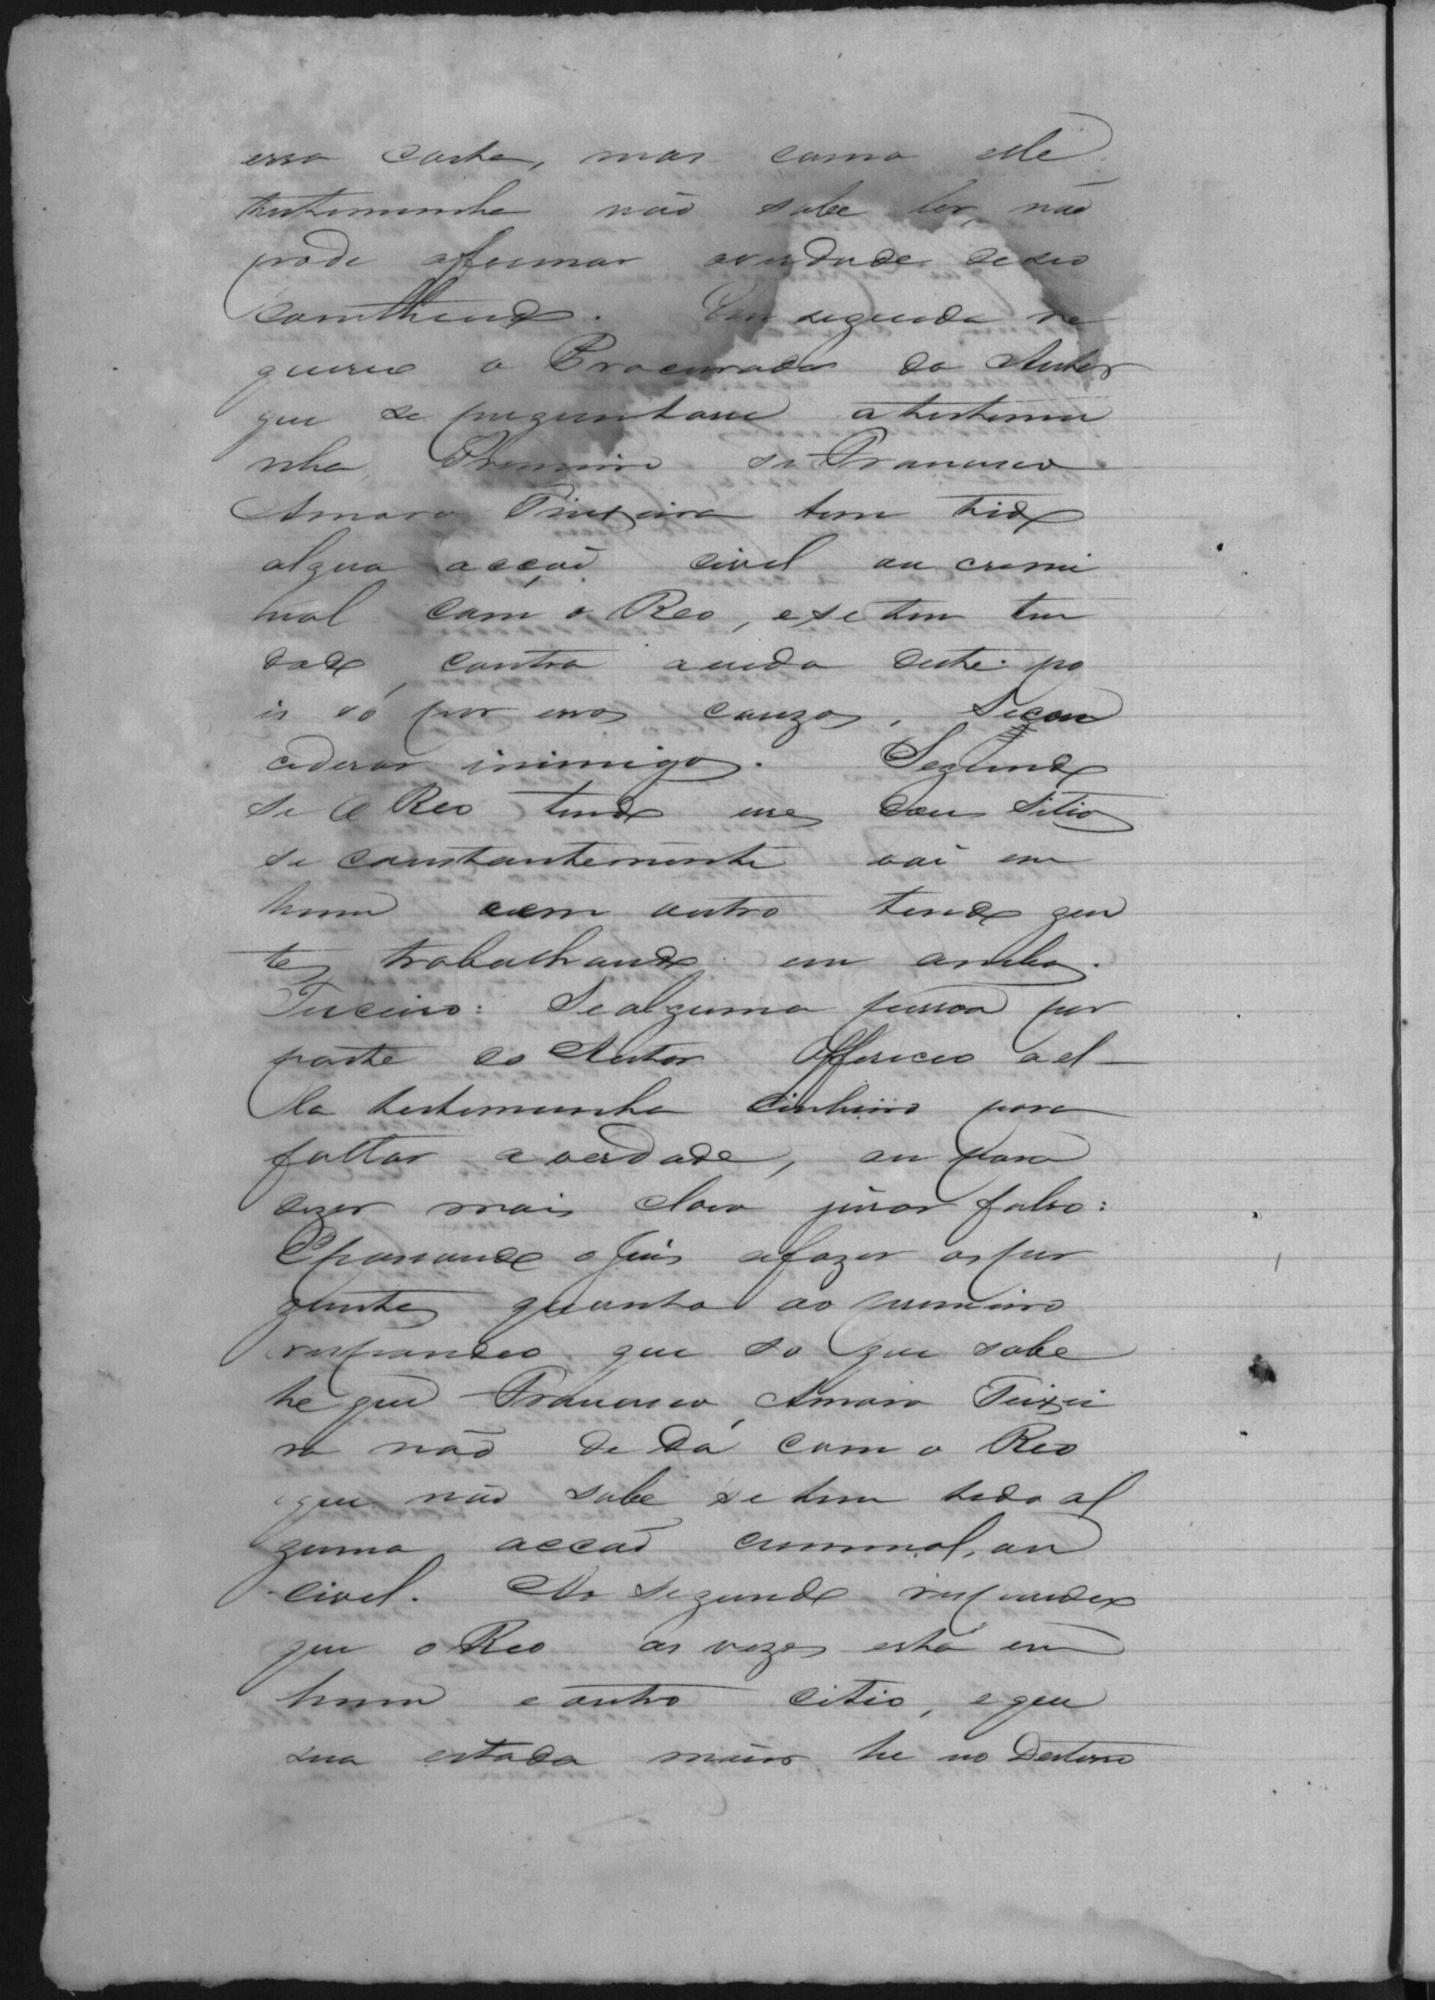 essa carta, mas como elle
testemunha não sabe ler, não
pode afirmar averdade deseo
comtheudo. Em seguida re
quereo o Procurador do Autor
que se preguntasse a testemu
nha Primeiro se Francisco
Amaro Teixeira tem tido
algua acção civel ou crimi
nal com o Reo, e se tem
contra avida deste po
is só por essas cauzas, Secon
cederar inimigo. Segundo
se o Reo tendo seu Sitio
se constantemente vai em
hum e em outro tendo gen
te trabalhando em ambos.
Terceiro: Sealguma pessoa por
parte do Autor Offereceo a el-
la testemunha dinheiro para
faltar a verdade, ou para
dizer mais claro jurar falso:
Epassando o Juis afazer asper
guntas quanto ao primeiro
respondeo que so que sabe
he que Francisco Amaro Teixei
ra não se dá com o Reo
que não sabe se tem tido al
guma accão criminal, ou
civel. Ao segundo respondeo
que o Reo as vezes está em
hum e outro citio, e que
sua estada maior he no Desterro